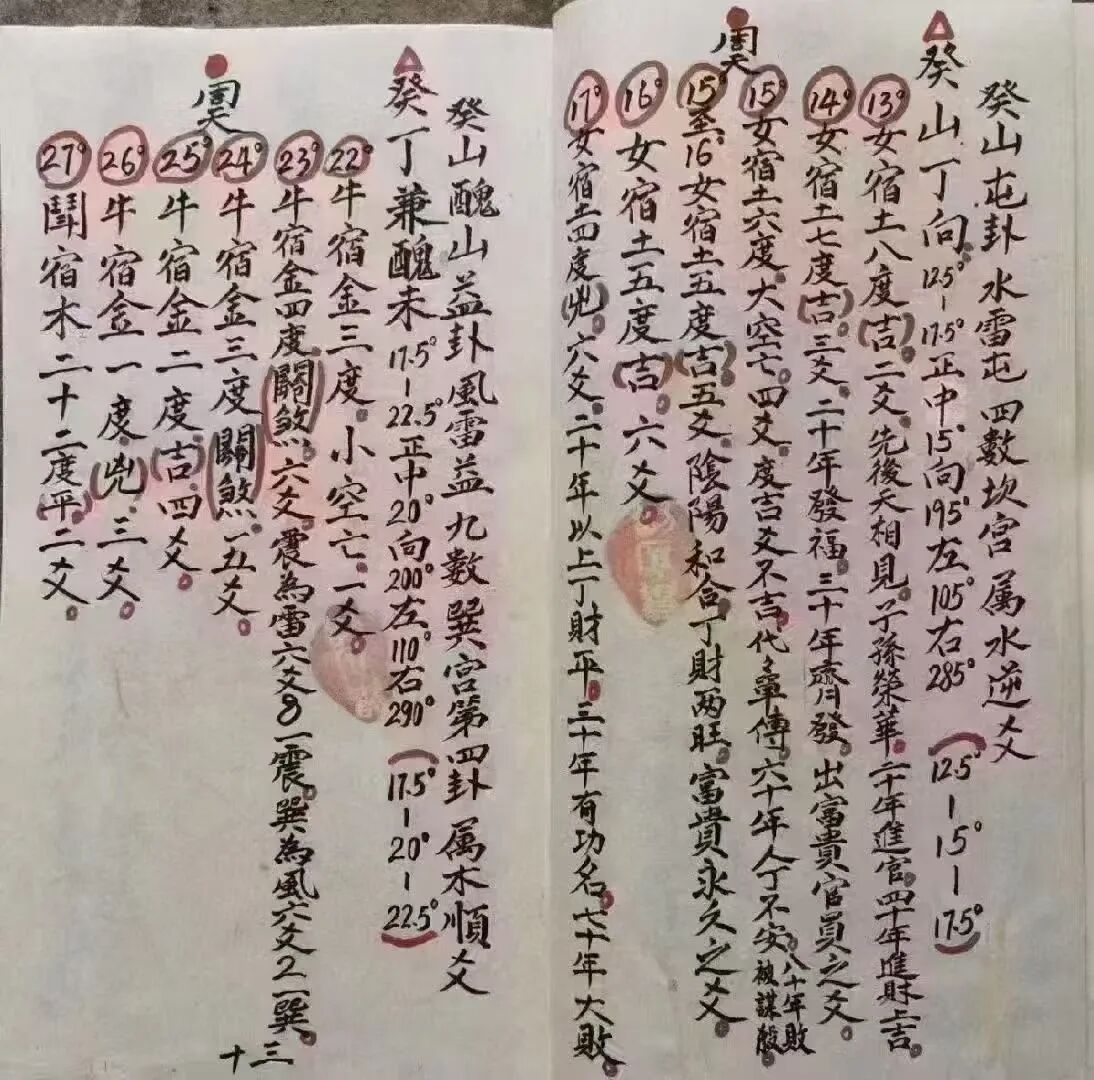 癸山屯卦水雷屯四數坎宮属水逆爻
癸山丁向。12.5°-17.5°正中15°向195°左105°右285°(12.5°-15°-17.5°)
周天
13°女宿土八度(吉)。二爻。先後天相見。子孫榮華。二十年進官。四十年進財上吉。
14°女宿土七度(吉)。三爻。二十年發福。三十年齊發。出富貴官員之爻。
15°女宿土六度。大空亡。四爻。度吉爻不吉。代々單傳。六十年人丁不安。八十年敗
15°至16°女宿土五度(吉)。五爻。陰陽和合丁財两旺。富貴永久之爻。
16°女宿土五度(吉)。六爻。
17°女宿土四度(兇)。六爻。二十年以上丁財平。三十年有功名。七十年大敗。
癸山醜山益卦風雷益九數巽宮第四卦属木順爻
癸丁兼醜未17.5°-22.5°正中20°向200°左110°右290°(17.5°-20°-22.5°)
周天
22°牛宿金三度。小空亡。一爻。
23°牛宿金四度(關煞)。六爻。震為雷六爻8一震。巽為風六爻2一巽。
24°牛宿金三度(關煞)。五爻。
25°牛宿金二度(吉)。四爻。
26°牛宿金一度(兇)。三爻。
27°鬪宿木二十二度(平)。二爻。
十三